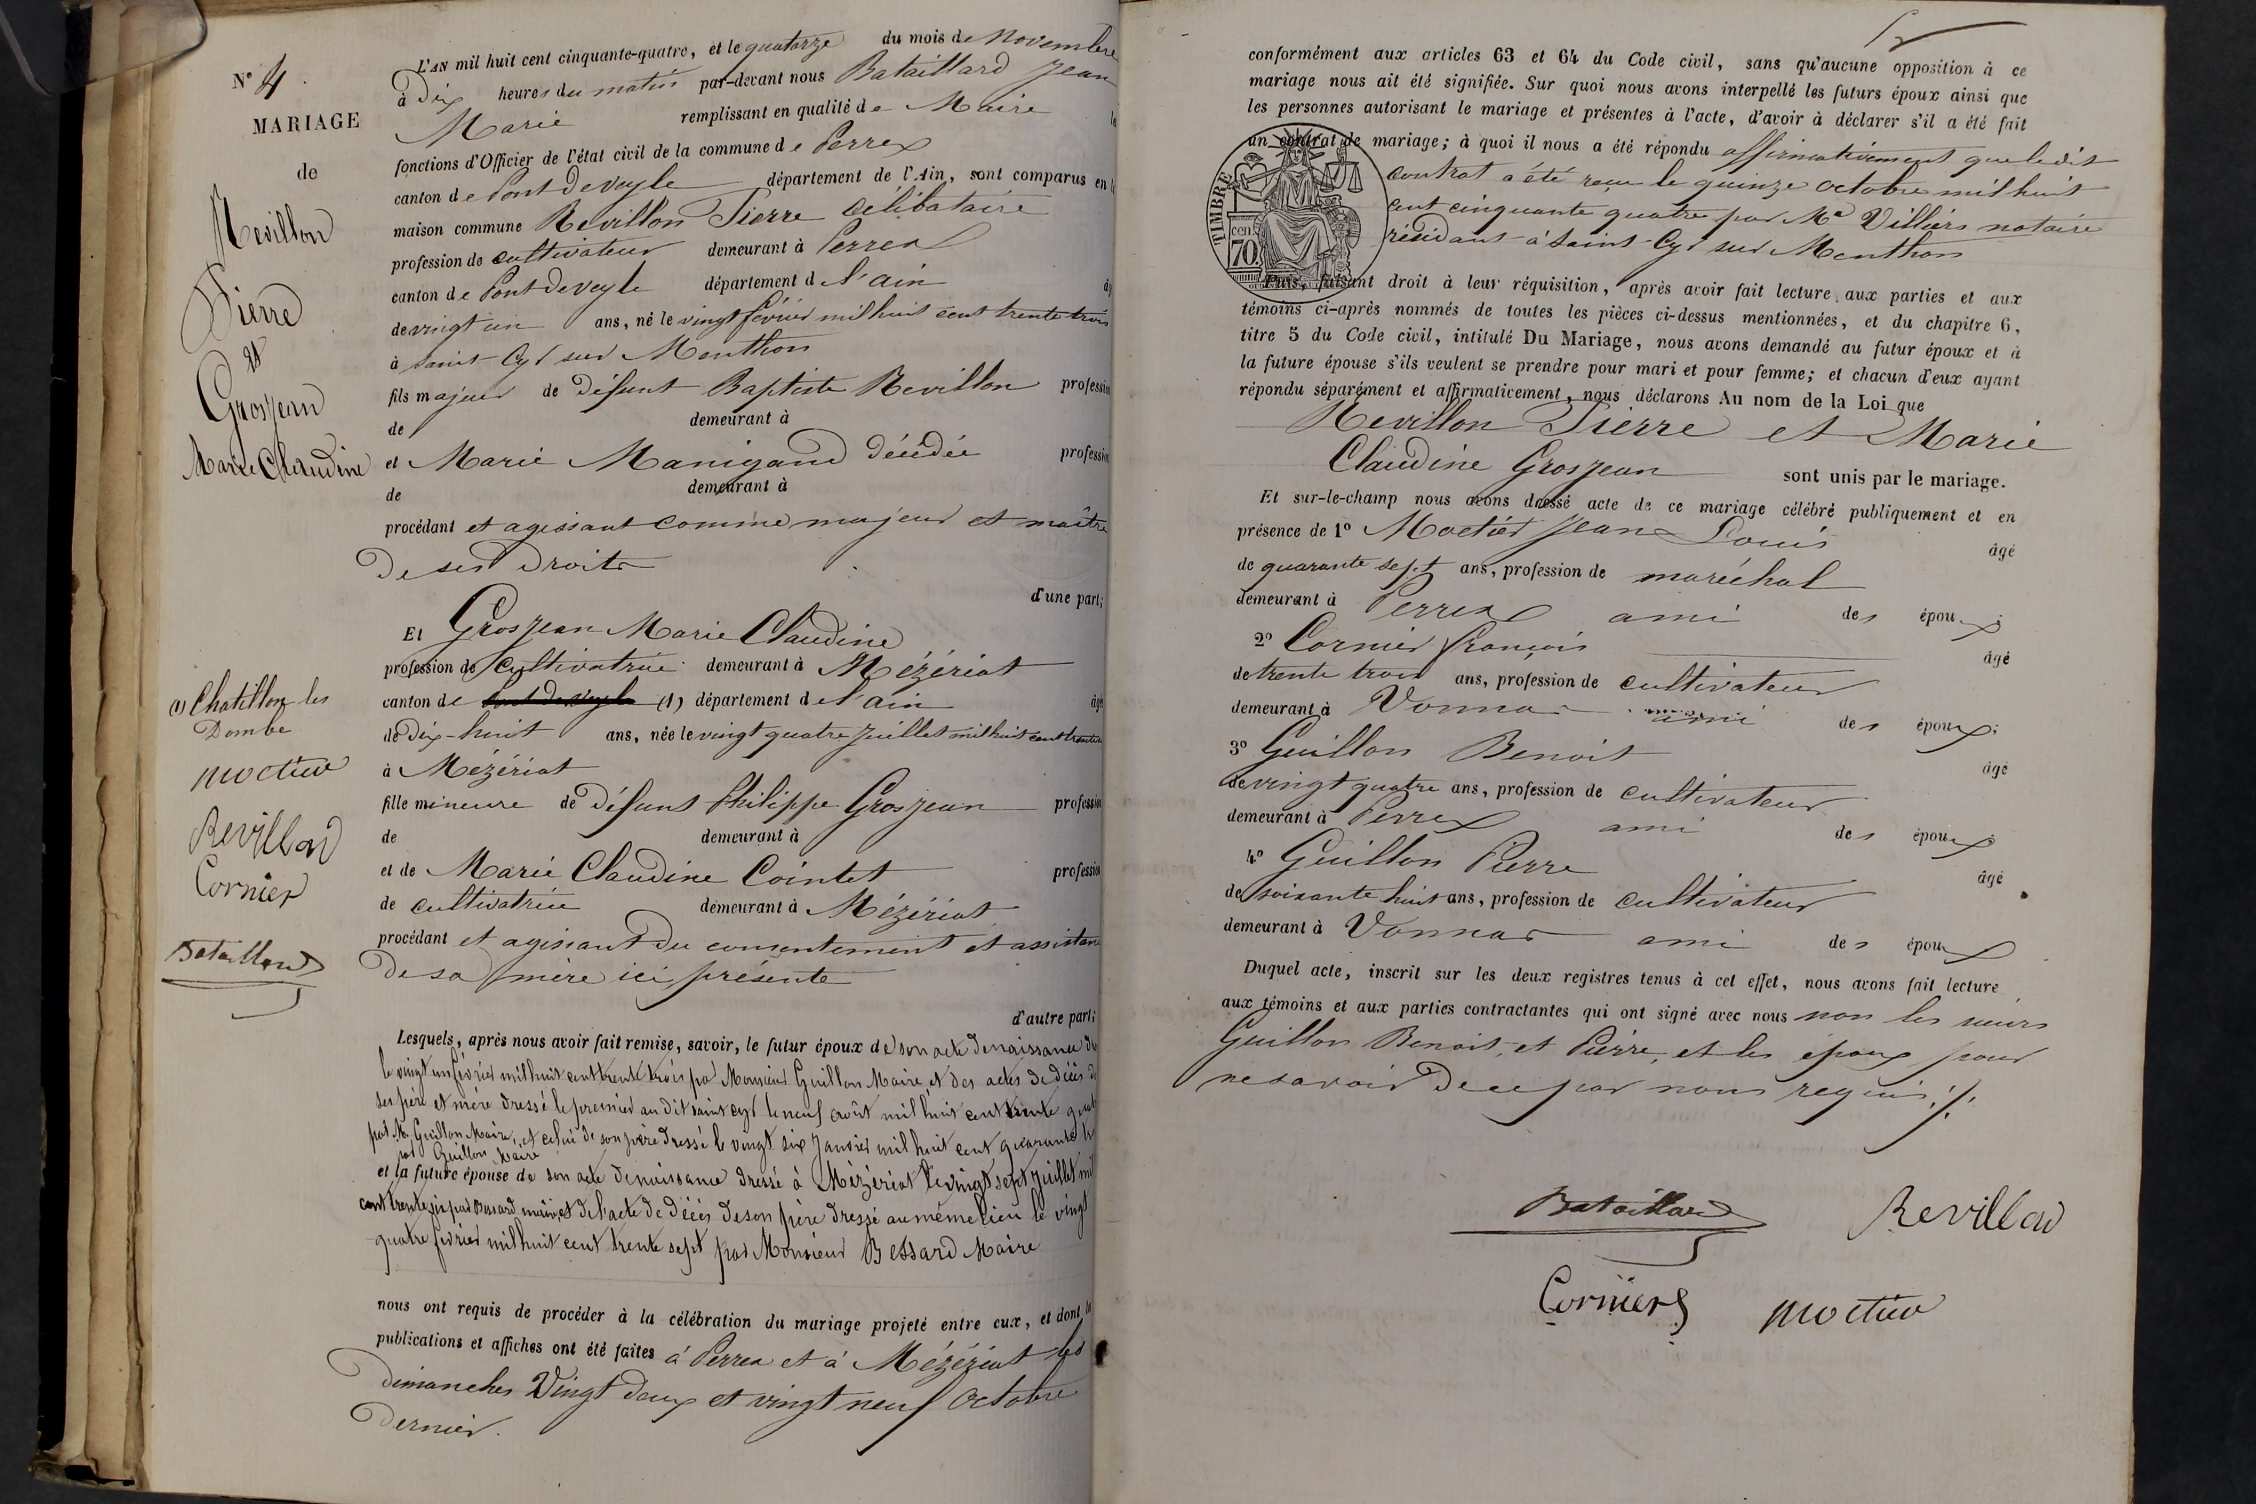 N° 4
MARIAGE
de
Revillon
Pierre
et
Grosjean
Marie Claudine
(1) Chatillon les
Dombe
moctier
Revillon
Cornier
Bataillard
L'AN mil huit cent cinquante-quatre, et le quatorze du mois de Novembre
à Dix heures du matin par-devant nous Bataillard Jean
Marie remplissant en qualité de Maire
fonctions d'Officier de l'état civil de la commune de Perrex
canton de Pont Deveyle département de l'Ain, sont comparus en
maison commune Revillon Pierre célibataire
profession de cultivateur demeurant à Perrex
canton de Pont Deveyle département de l'ain
de vingt un ans, né le vingt février mil huit cent trente trois
à saint Cyr sur Menthon
fils majeur de défunt Baptiste Revillon profession
de demeurant à
et Marie Manigand décédée profession
de demeurant à
procédant et agissant comme majeur et maître
De ses Droits
d'une part;
Et Grosjean Marie Claudine
profession de cultivatrice demeurant à Mézériat
canton de Pont de veyle (1) département de l'ain
de Dix-huit ans, née le vingt quatre juillet mil huit cent
à Mézériat
fille mineure de Défunt Philippe Grosjean profession
de demeurant à
et de Marie Claudine Cointet profession
de cultivatrice demeurant à Mézériat
procédant et agissant du consentement et assistance
De sa mère ici présente
d'autre part;
Lesquels, après nous avoir fait remise, savoir, le futur époux de son acte de naissance du
le vingt un février mil huit cent trente trois par Monsieur Guillon Maire, et des actes de décès de
ses père et mère dressé le premier au dit saint cyr le neuf août mil huit cent trente quatre
par Mr Guillon Maire, et celui de son père dressé le vingt six janvier mil huit cent quarante
par Guillon Maire
et la future épouse de son acte de naissance dressé à Mézériat le vingt sept juillet mil
cent trente six par Bessard maire, et de l'acte de décès de son père dressé au même lieu le vingt
quatre février mil huit cent trente sept par Monsieur Bessard Maire
nous ont requis de procéder à la célébration du mariage projeté entre eux, et dont
publications et affiches ont été faites à Perrex et à Mézériat les
Dimanches Vingt deux et vingt neuf Octobre
Dernier.
conformément aux articles 63 et 64 du Code civil, sans qu'aucune opposition à ce
mariage nous ait été signifiée. Sur quoi nous avons interpellé les futurs époux ainsi que
les personnes autorisant le mariage et présentes à l'acte, d'avoir à déclarer s'il a été fait
un contrat de mariage; à quoi il nous a été répondu affirmativement que ledit
contrat a été reçu le quinze octobre mil huit
cent cinquante quatre par Me Villiers notaire
résidant à Saint-Cyr sur Menthon
TIMBRE
cen.
70.
Puis, faisant droit à leur réquisition, après avoir fait lecture aux parties et aux
témoins ci-après nommés de toutes les pièces ci-dessus mentionnées, et du chapitre 6,
titre 5 du Code civil, intitulé Du Mariage, nous avons demandé au futur époux et à
la future épouse s'ils veulent se prendre pour mari et pour femme; et chacun d'eux ayant
répondu séparément et affirmativement, nous déclarons Au nom de la Loi que
Revillon Pierre et Marie
Claudine Grosjean sont unis par le mariage.
Et sur-le-champ nous avons dressé acte de ce mariage célébré publiquement et en
présence de 1° Moctier Jean Louis âgé
de quarante sept ans, profession de maréchal
demeurant à Perrex ami des époux;
2° Cornier françois âgé
de trente trois ans, profession de cultivateur
demeurant à Vonnas ami des époux;
3° Guillon Benoit âgé
de vingt quatre ans, profession de cultivateur
demeurant à Perrex ami des époux;
4° Guillon Pierre âgé
de soixante huit ans, profession de cultivateur
demeurant à Vonnas ami des époux
Duquel acte, inscrit sur les deux registres tenus à cet effet, nous avons fait lecture
aux témoins et aux parties contractantes qui ont signé avec nous non les sieurs
Guillon Benoit, et Pierre, et les époux pour
ne savoir de ce par nous requis ./.
Bataillard
Revillon
Cornier
moctier